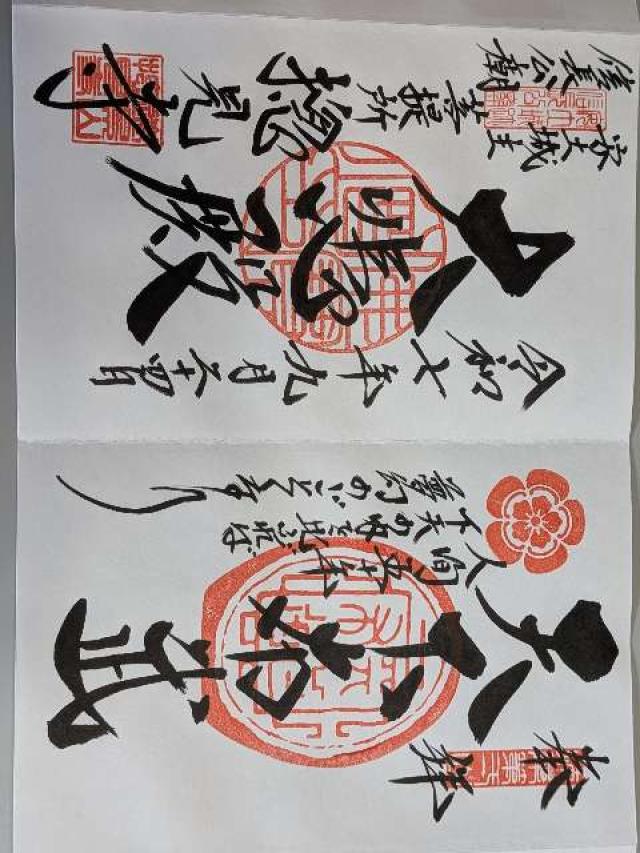 奉拝
天下布武
人間五十年
下天の内を比ぶれば
夢幻のごとくなり
令和七年九月二十四日
大悲殿
安土城主
信長公廟
菩提所
摠見寺